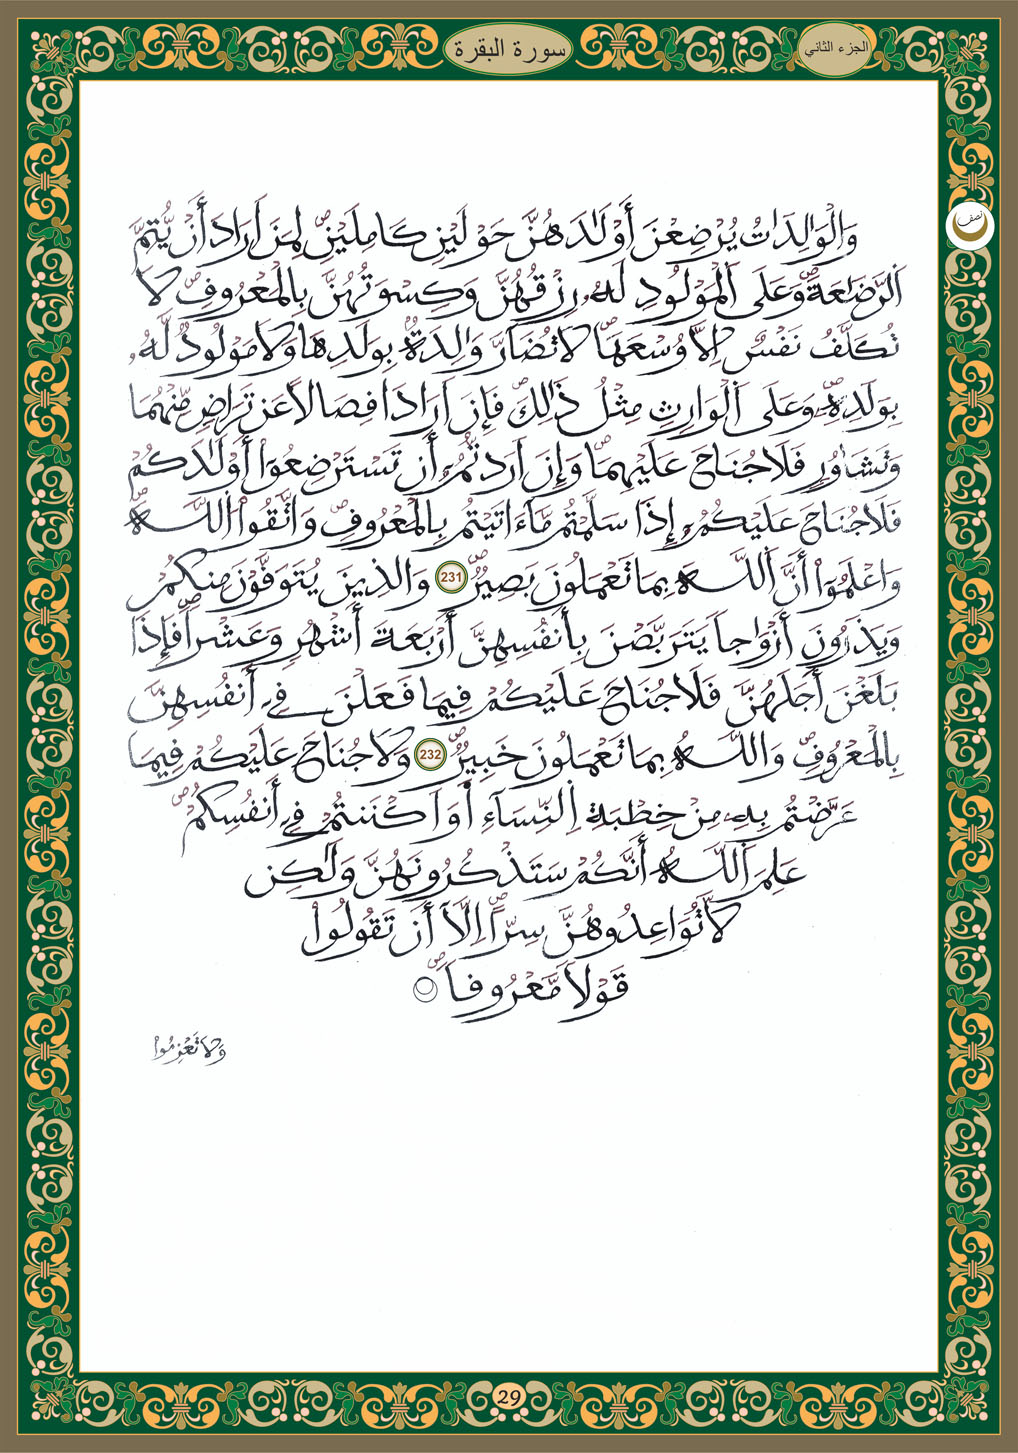 الجزء الثاني
سورة البقرة
نصف
وَالْوَالِدَاتُ يُرْضِعْنَ أَوْلَٰدَهُنَّ حَوْلَيْنِ كَامِلَيْنِۖ لِمَنَ اَرَادَ أَنْ يُّتِمَّ
اَ۬لرَّضَٰعَةَۖ وَعَلَى اَ۬لْمَوْلُودِ لَهُۥ رِزْقُهُنَّ وَكِسْوَتُهُنَّ بِالْمَعْرُوفِۖ لَا
تُكَلَّفُ نَفْسٌ اِلَّا وُسْعَهَاۖ لَا تُضَآرَّ وَٰلِدَةُۢ بِوَلَدِهَا وَلَا مَوْلُودٌ لَّهُۥ
بِوَلَدِهِۦۖ وَعَلَى اَ۬لْوَارِثِ مِثْلُ ذَٰلِكَۖ فَإِنَ اَرَادَا فِصَالًا عَن تَرَاضٖ مِّنْهُمَا
وَتَشَاوُرٖ فَلَا جُنَاحَ عَلَيْهِمَاۖ وَإِنَ اَرَدتُّمُۥٓ أَن تَسْتَرْضِعُوٓاْ أَوْلَٰدَكُمْ
فَلَا جُنَاحَ عَلَيْكُمُۥٓ إِذَا سَلَّمْتُم مَّآ ءَاتَيْتُم بِالْمَعْرُوفِۖ وَاتَّقُواْ اُ۬للَّهَۖ
وَاعْلَمُوٓاْ أَنَّ اَ۬للَّهَ بِمَا تَعْمَلُونَ بَصِيرٌۖ 231 وَالذِينَ يُتَوَفَّوْنَ مِنكُمْ
وَيَذَرُونَ أَزْوَٰجاً يَتَرَبَّصْنَ بِأَنفُسِهِنَّ أَرْبَعَةَ أَشْهُرٖ وَعَشْراًۖ فَإِذَا
بَلَغْنَ أَجَلَهُنَّ فَلَا جُنَاحَ عَلَيْكُمْ فِيمَا فَعَلْنَ فِےٓ أَنفُسِهِنَّ
بِالْمَعْرُوفِۖ وَاللَّهُ بِمَا تَعْمَلُونَ خَبِيرٌۖ 232 وَلَا جُنَاحَ عَلَيْكُمْ فِيمَا
عَرَّضْتُم بِهِۦ مِنْ خِطْبَةِ اِ۬لنِّسَآءِ اَ۬وَ اَكْنَنتُمْ فِےٓ أَنفُسِكُمْۖ
عَلِمَ اَ۬للَّهُ أَنَّكُمْ سَتَذْكُرُونَهُنَّ وَلَٰكِن
لَّا تُوَاعِدُوهُنَّ سِرّاًۖ اِلَّآ أَن تَقُولُواْ
قَوْلًا مَّعْرُوفاًۖ
وَلَا تَعْزِمُواْ
29